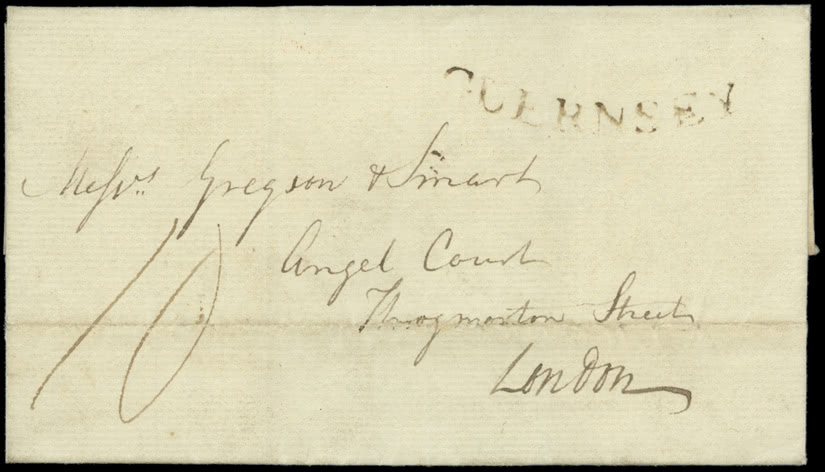 GUERNSEY
Messrs Gregson & Smart
Angel Court
Throgmorton Street
London
10